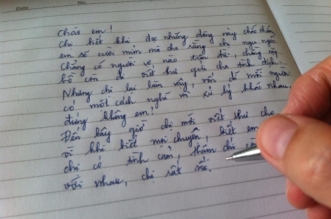 Chào em!
Chị biết khi đọc những dòng này chắc chắn
em sẽ cười mỉm mà cho rằng chị ngu ngơ
Chẳng có người vợ nào
lại còn đi viết thư gửi cho tình địch.
Nhưng chị lại làm vậy, vốn dĩ mỗi người
có một cách nghĩ và xử lý khác nhau,
đúng không em!
Đến bây giờ chị mới viết thư cho
vì khi biết mọi chuyện, biết em
chị có tình cảm, thậm chí
với nhau, chị rất sốc,